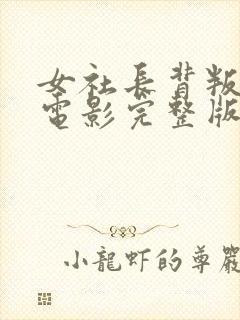 女社長背叛
電影完整版
小龍虾的尊嚴